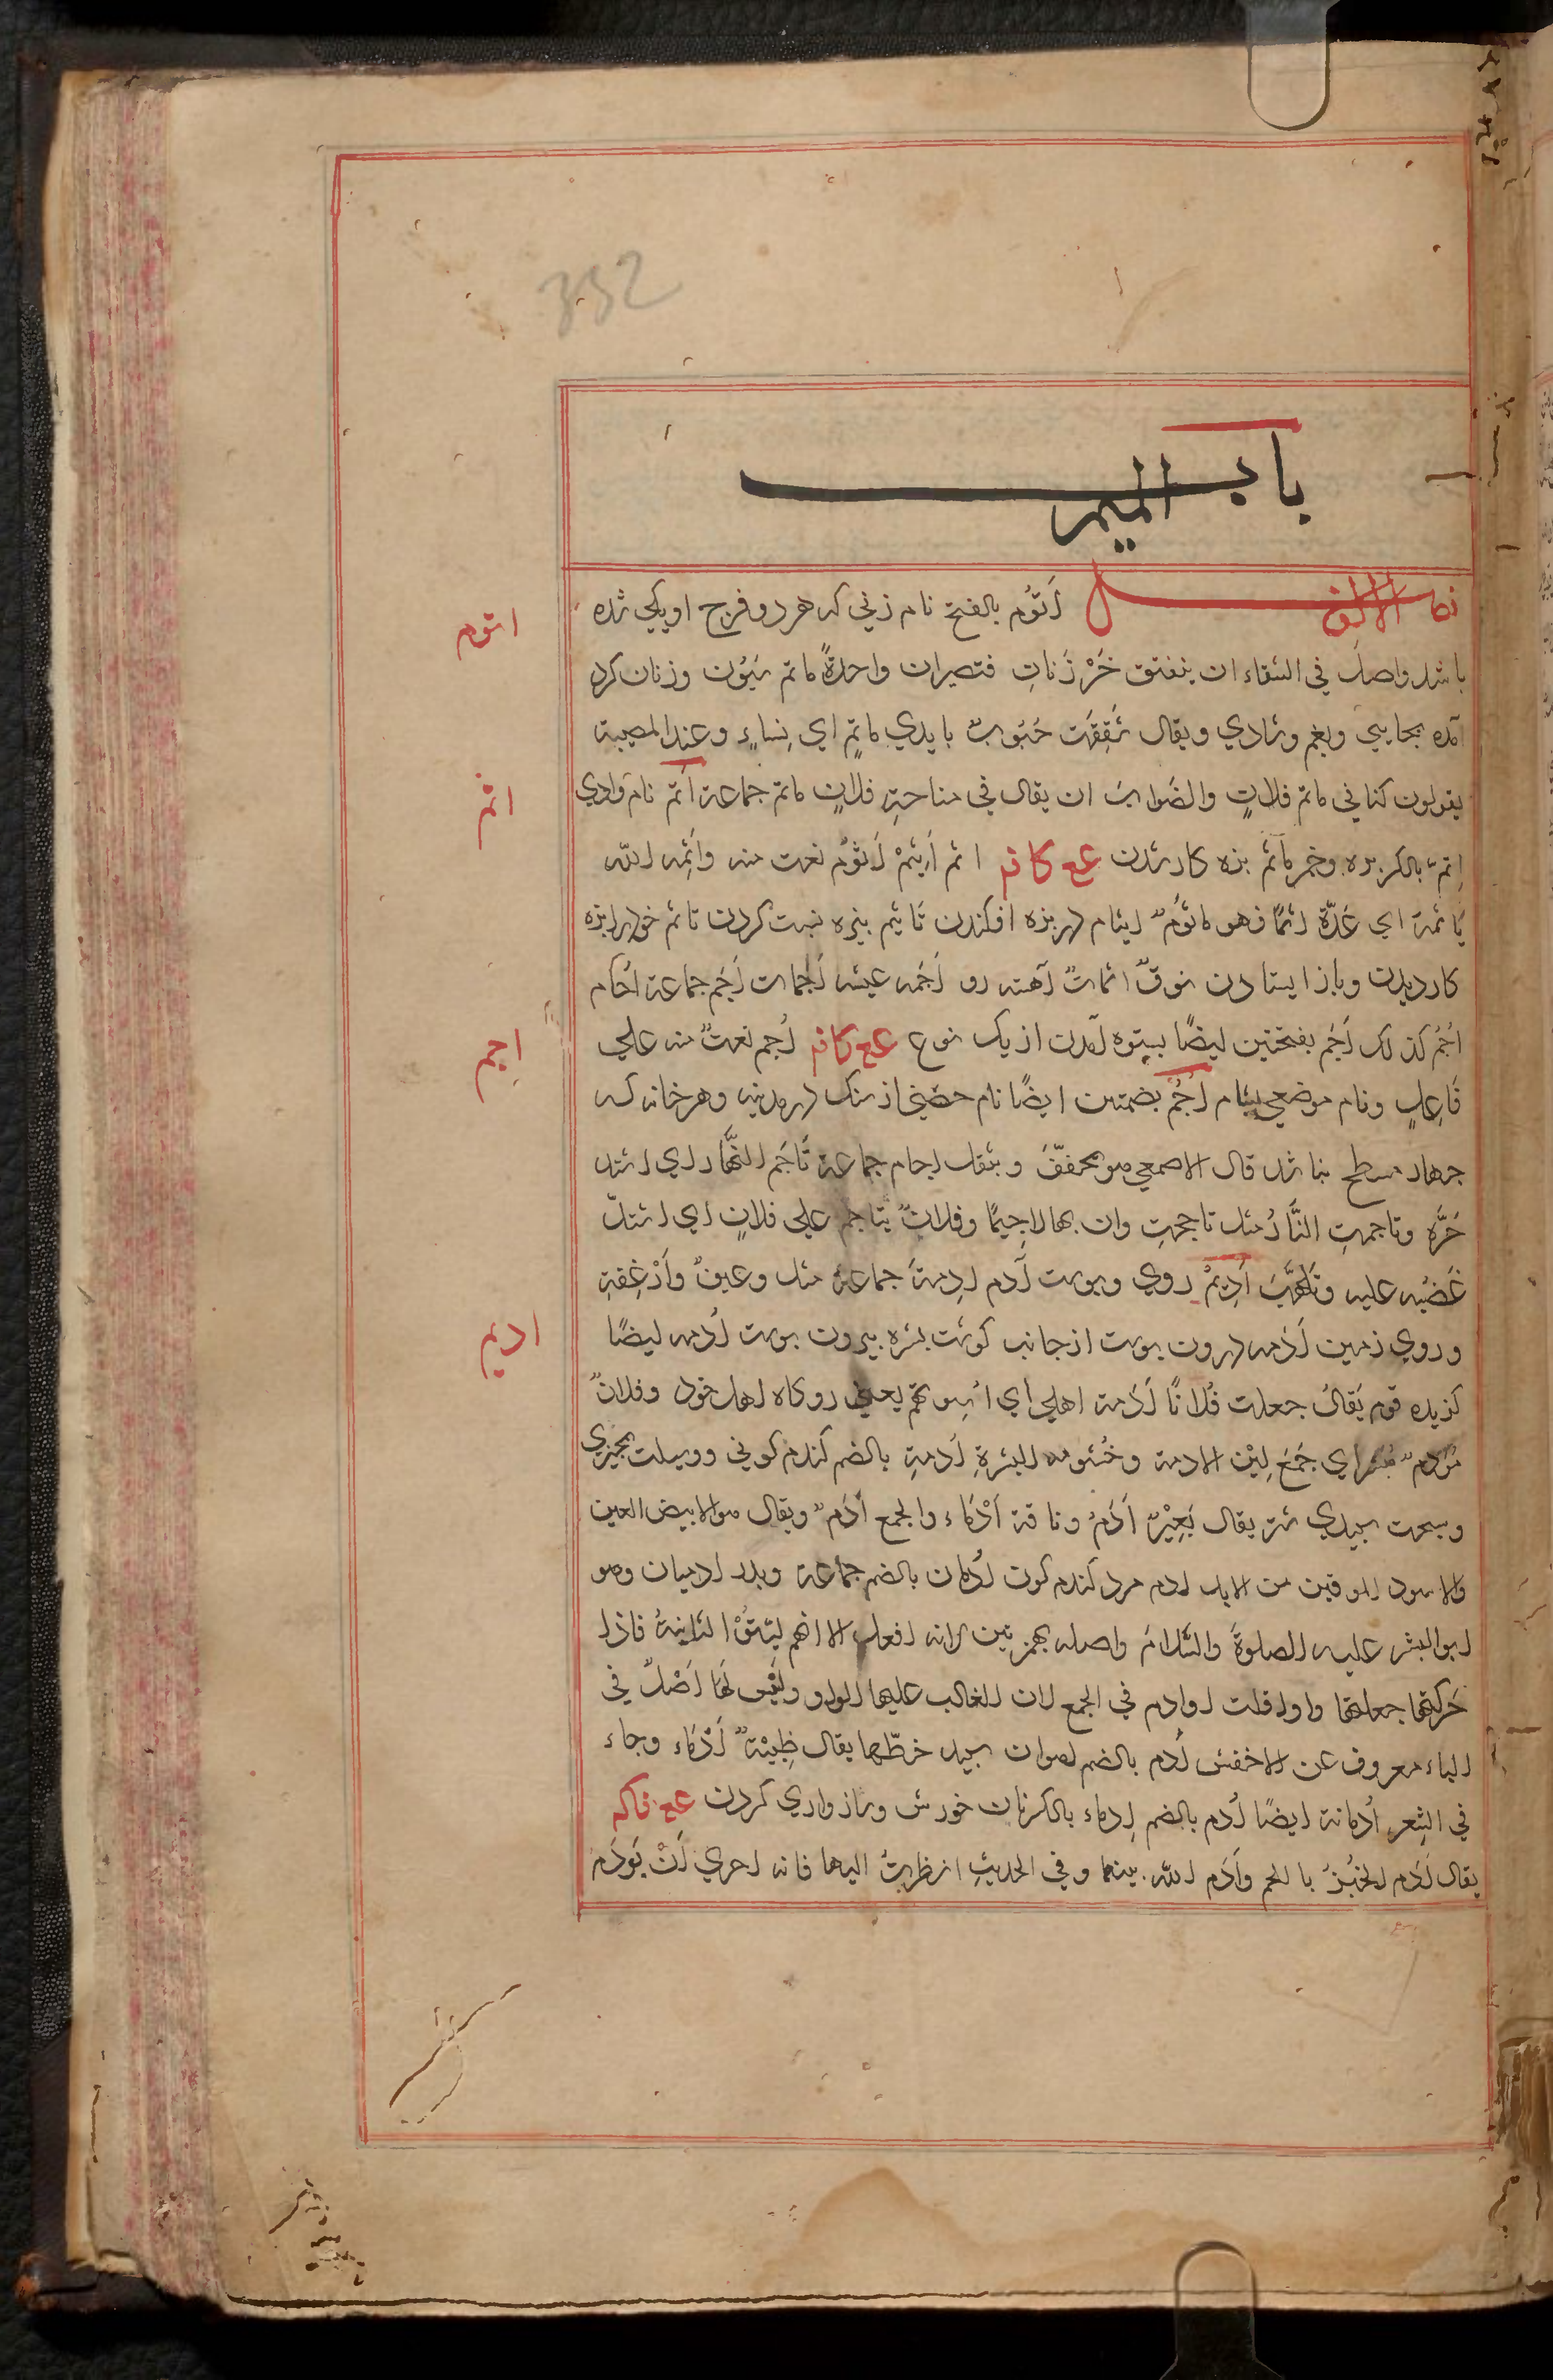 352
باب الميم
فصل الالف اَتُوُم بالفتح نام زني كه هر دو فرج او يكي شده
باشد واصله في السّقاء ان ينفتق خَرْزَتانِ فتصيران واحدةً ماتم سَيُون وزنان كرد
آمده بجايي وبغم وشادي ويقال بايدي ماتمٍ اي نِساءٍ وعند المصيبة
يقولون كنا في ماتم فلانٍ والصّوابُ ان يقال في مناحةِ فلانٍ ماتم جماعة اُتُم نام وادي
اِثمٌ بالكسر بزه وخمر مأثم بزه كار شدن ع ع كا ف اثم اَثِيْمٌ اَثُوْم نعت منه واَثَمَه الله
يَاثمُهُ اي عَدَّهُ اثمًا فهو ماثُومٌ ايثام در بزه افكندن تَاثيم ببزه نسبت كردن تاثم خودرا بزه
كار ديدن وباز ايستادن نوقٌ اثماتٌ آهسته رو اَجَمه بيشه اَجَمات اَجَم جماعة اُجام
اُجُم كذلك اَجَم بفتحتين ايضًا بستوه آمدن از يك نوع ع ع كا ف اَجِم نعتٌ منه علي
فَاعِلٍ ونام موضعي بشام اُجُم بضمتين ايضًا نام حصني از سنك در مدينه وهر خانه كه
جهار مسطح باشد قال الاصمعي هو مخفّفَ ويثقل اجام جماعة تَاجَم النَّهار اي اشتد
حَرُّه وتاجمتِ النَّارُ مثل تاججتِ وان بها لاجِيمًا وفلانٌ يتاجم علي فلانٍ اي اشتدّ
غَضَبُه عليه وتَلَهَّبَ اَدِيْمٌ روي وپوست آدم اَدِمةَ جماعةٌ مثل رغيفٌ وَأَرْغِفةِ
وروي زمين اَدَمه درون پوست از جانب كوشت بشره بيرون پوست اُدمه ايضًا
كزيده قوم يَقالُ جعلت فُلانًا اَدَمة اهلي اي اُسوتهم يعني روكاه اهل خود وفلانٌ
مُؤدَمٌ مُبشَر اي جَمَعَ لِيْن الادمة وخُشونه البشرةِ اُدمةِ بالضم كندم كوني ووسيلت بجيزي
وسخت سپيدي شتر يقال بَعِيْرٌ اَدَمُ وناقة اَدْمَاء والجمع اُدَمٌ ويقال هو الابيض العين
والاسود الموقين من الابل ادم مرد كندم كون اُدمان بالضم جماعة وبدر ادميان وهو
ابو البشر عليه الصلوةَ والسَّلامَ واصله بهمزتين لانه افعل الا انهم لَيَّنُوْا الثانيةُ فاذا
حَركتها جعلتها واوا قلت اوادم في الجمع لان الغالب عليها الواو ولَيْسَ لَهَا اَصْلٌ في
الياء معروف عن الاخفش اُدم بالضم اهوان سپيد خطّها يقال ظِبيَةٌ اَدْمَاء وجاء
في الشِعرِ اُدمانة ايضًا اُدم بالضم اِدماء بالكسر نان خورش وسازواري كردن ع ع فا كه
يقال اَدَم الخُبْزُ بالحم وآدَم الله بينهما وفي الحديثِ انظرتُ اليها فانه احري اَنْ يَوْدَم
اتوم
اثم
اجم
اديم